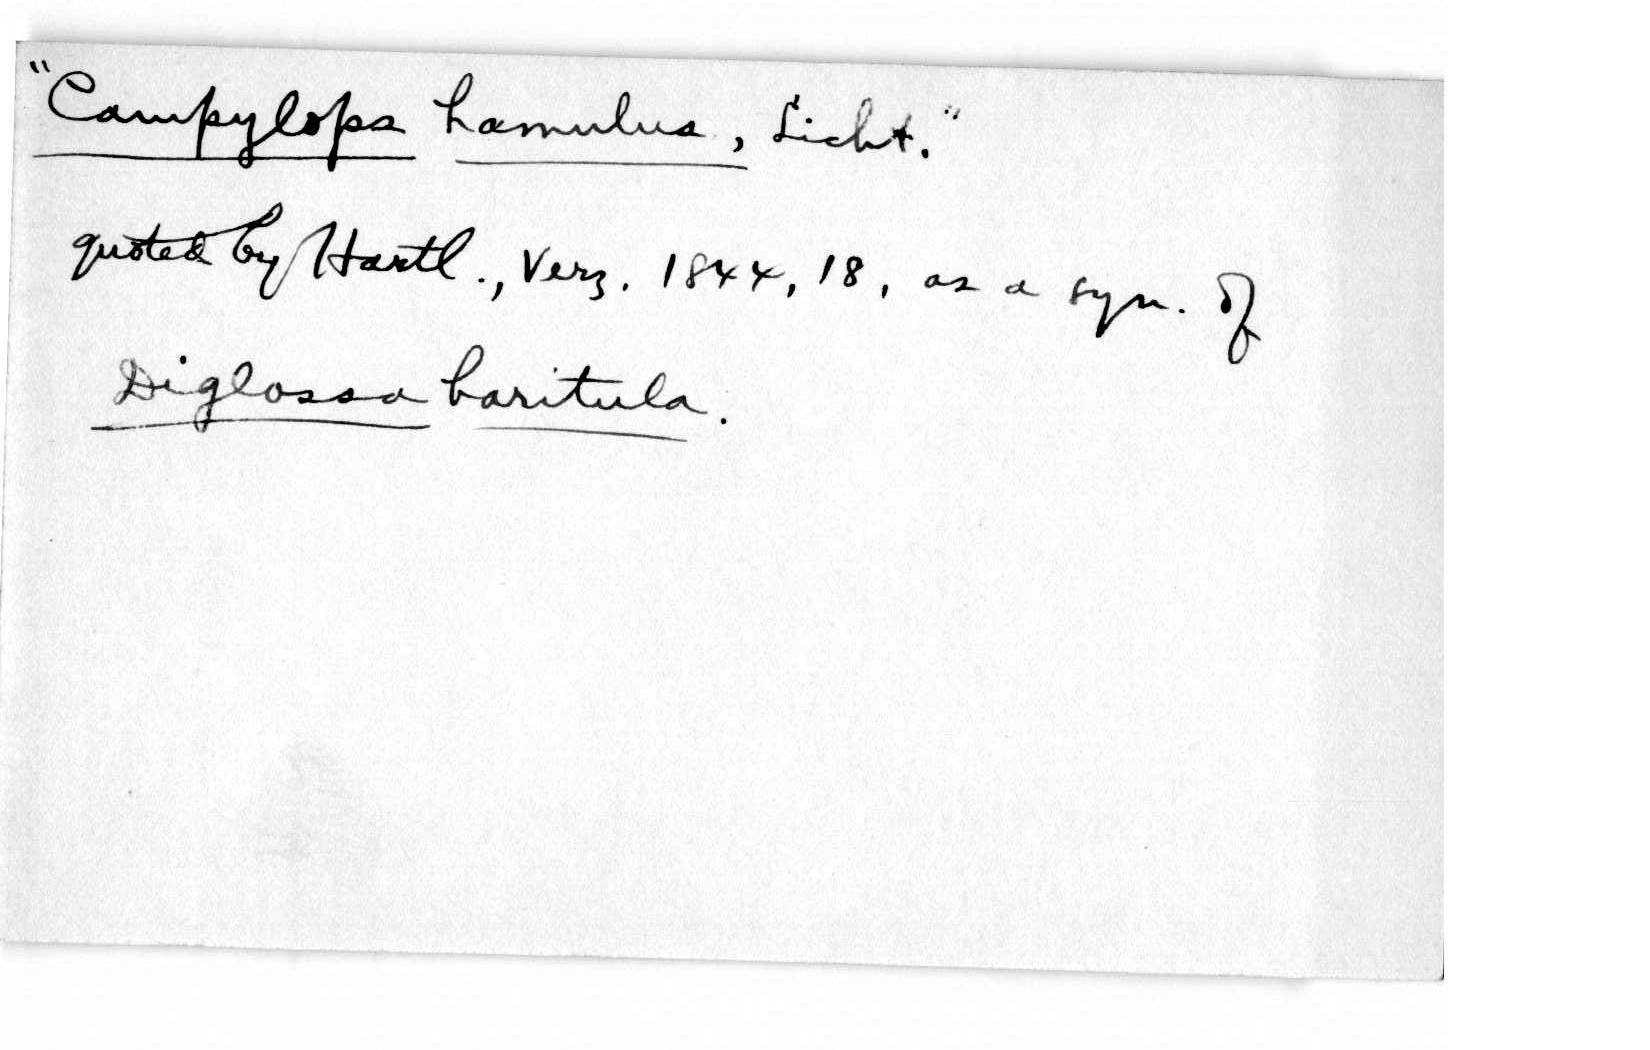 "Campylops hamulus, Licht."
quoted by Hartl., Verz. 1844, 18, as a syn. of
Diglossa baritula.